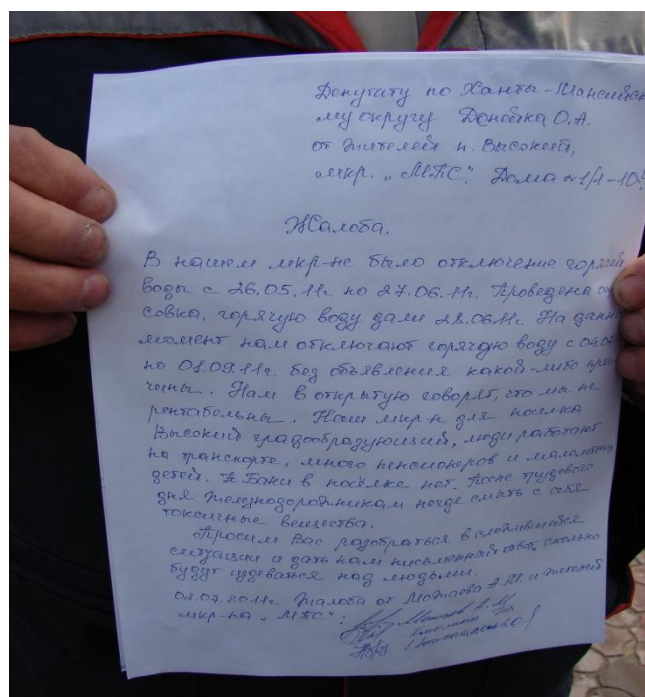 Депутату по Ханты-Мансийск
му округу Донейка О.А.
от жителей п. Высокий,
мкр. „МПС". Дома №1/1-10
Жалоба.
В нашем мкр-не было отключение горячей
воды с 26.05.11г. по 27.06.11г. Проведена оп
совка, горячую воду дали 28.06.11г. На данн
момент нам отключают горячую воду с
по 01.09.11г. без объявления какой-либо при-
чины. Нам в открытую говорят, что мы не
рентабельны. Наш мкр-н для посёлка
Высокий градообразующий, люди работают
на транспорте, много пенсионеров и малолетних
детей. Бани в посёлке нет. После трудового
дня железнодорожникам негде смыть с себя
токсичные вещества.
Просим Вас разобраться в сложившейся
ситуации и дать нам письменный ответ, сколько
будут издеваться над людьми.
02.07.2011г. Жалоба от и жителей
мкр-на „МПС":